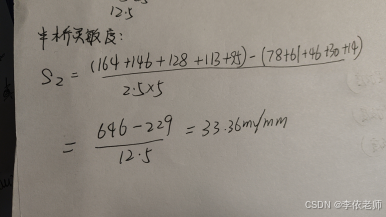 12.5
半桥灵敏度:
S₂ = (164+146+128+113+95)-(78+61+46+30+14)
2.5×5
= 646-229 = 33.36mv/mm
12.5
CSDN @李依老师